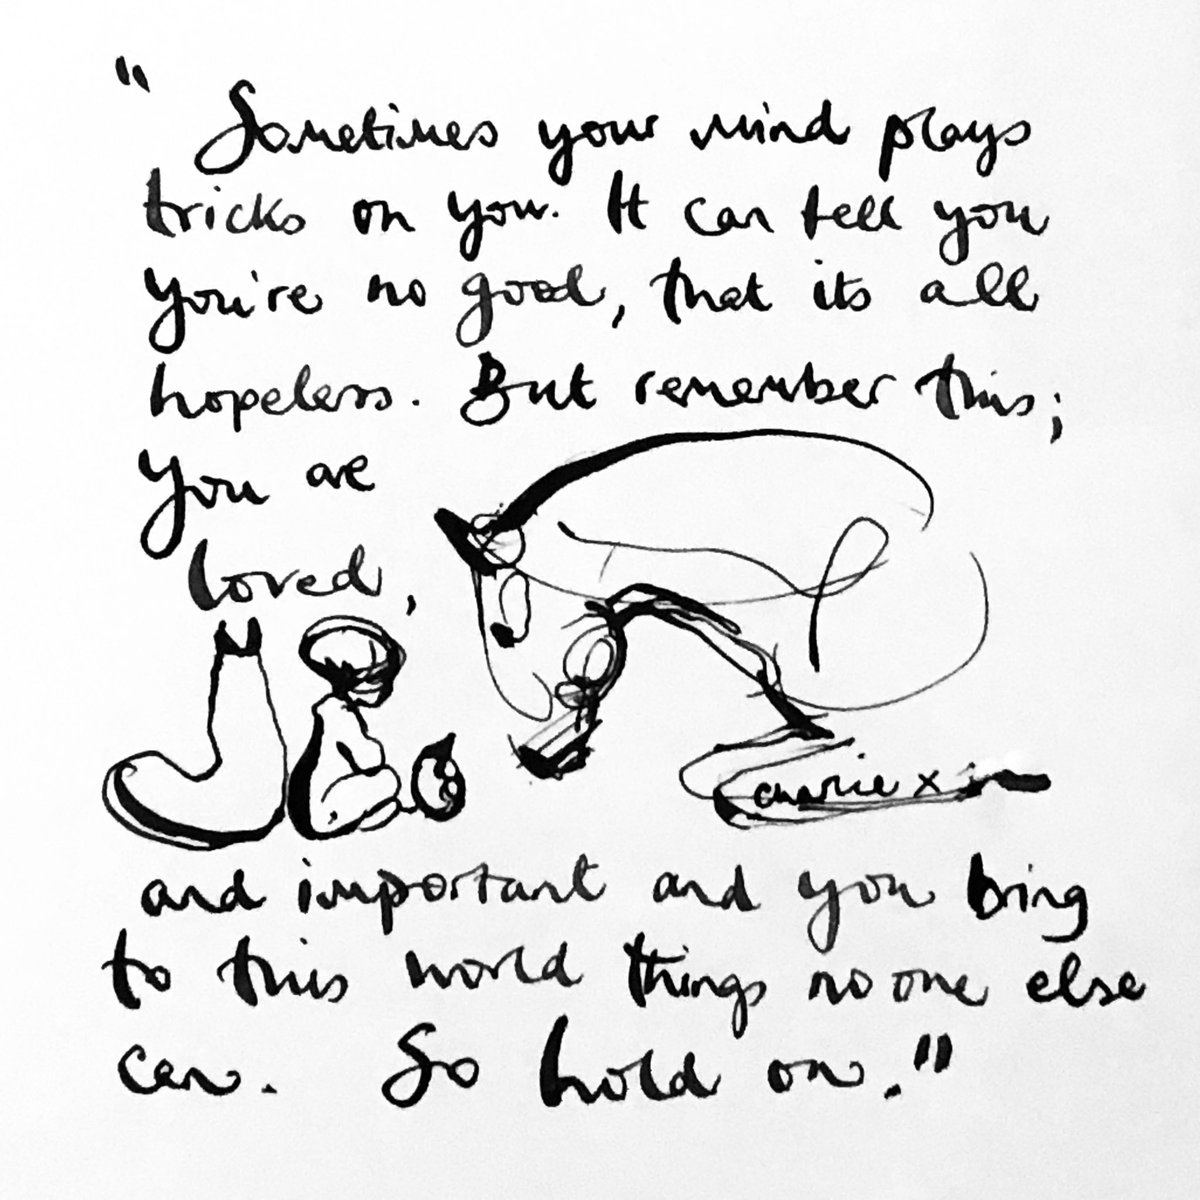 " Sometimes your mind plays
tricks on you. It can tell you
you're no good, that its all
hopeless. But remember this;
you are
loved,
charlie x
and important and you bring
to this world things no one else
can. So hold on."